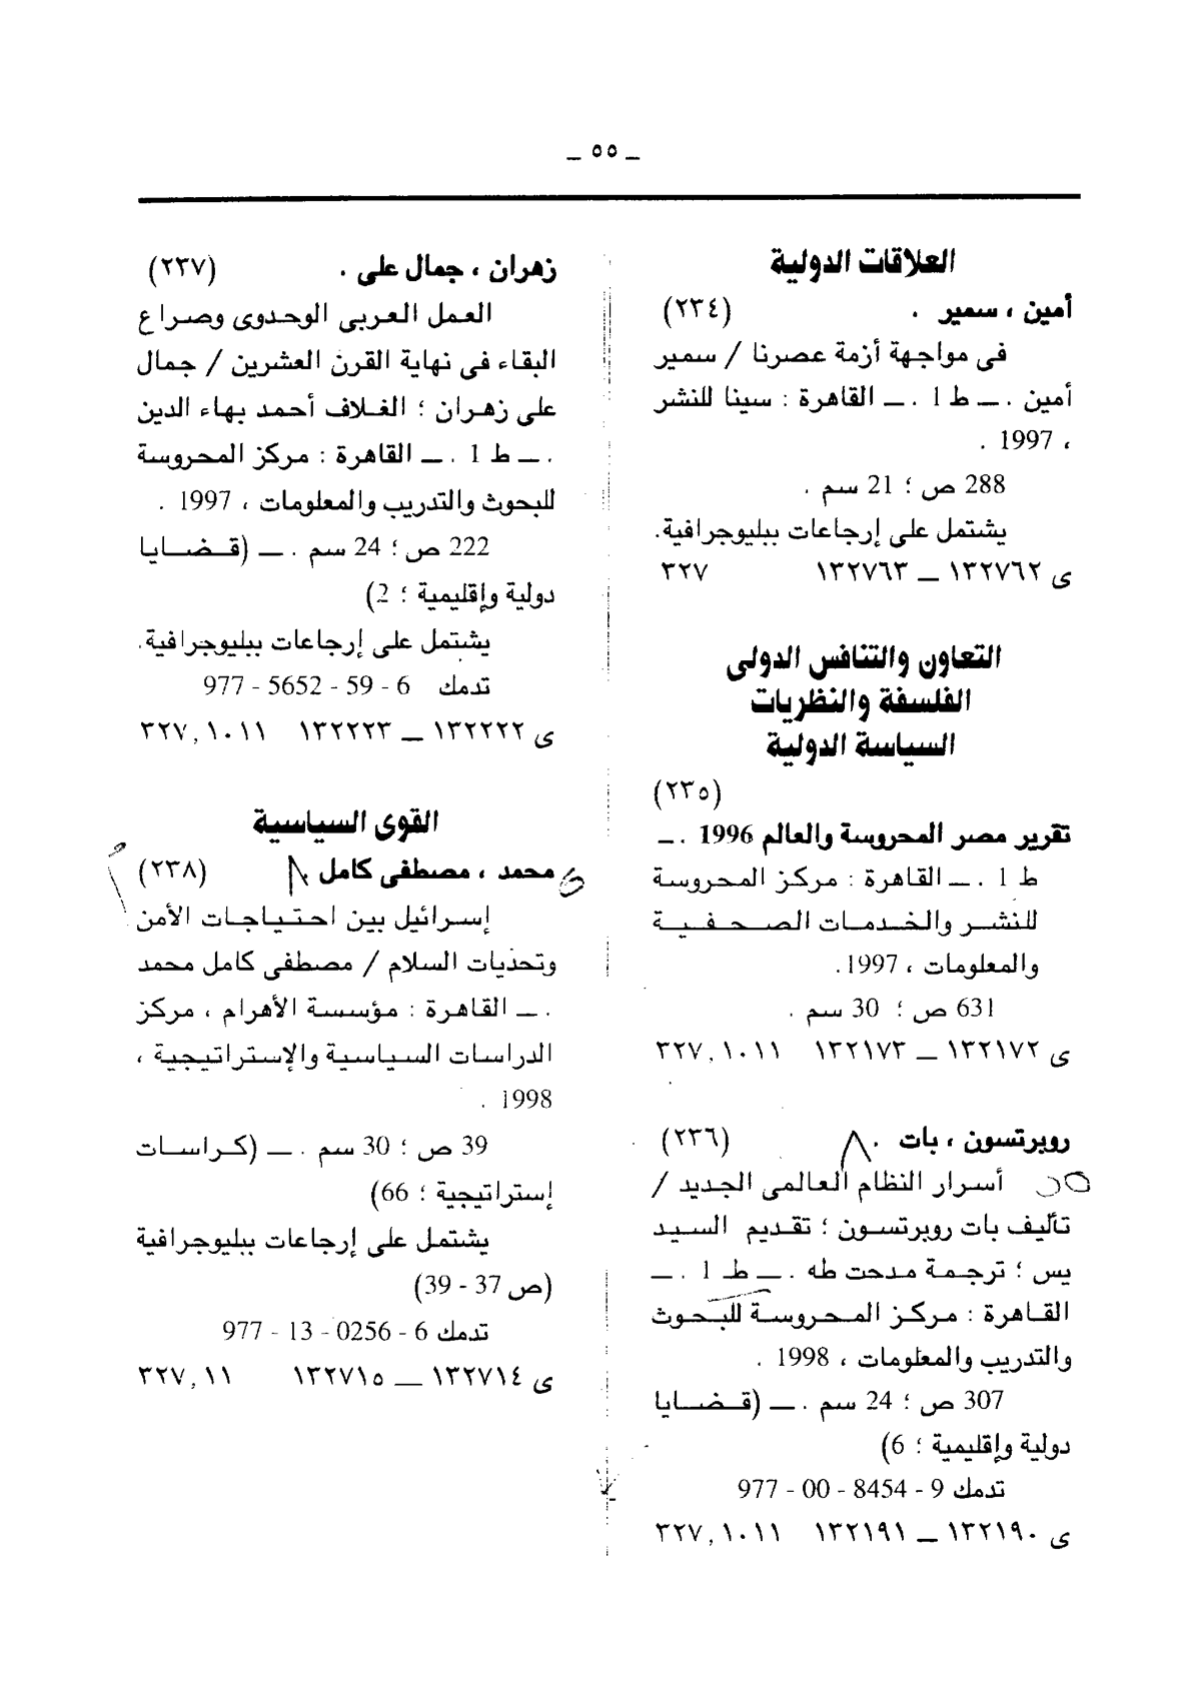 ـ ٥٥ ـ
العلاقات الدولية
أمين ، سمير . (٢٣٤)
فى مواجهة أزمة عصرنا / سمير
أمين . ــ ط 1 . ــ القاهرة : سينا للنشر
، 1997 .
288 ص ؛ 21 سم .
يشتمل على إرجاعات ببليوجرافية.
ى ١٣٢٧٦٢ ــ ١٣٢٧٦٣ ٣٢٧
التعاون والتنافس الدولى
الفلسفة والنظريات
السياسة الدولية
(٢٣٥)
تقرير مصر المحروسة والعالم 1996 . ــ
ط 1 . ــ القاهرة : مركز المحروسة
للنشر والخدمات الصحفية
والمعلومات ، 1997.
631 ص ؛ 30 سم .
ى ١٣٢١٧٢ ــ ١٣٢١٧٣ ٣٢٧,١٠١١
روبرتسون ، بات . (٢٣٦)
أسرار النظام العالمى الجديد /
تأليف بات روبرتسون ؛ تقديم السيد
يس ؛ ترجمة مدحت طه . ــ ط 1 . ــ
القاهرة : مركز المحروسة للبحوث
والتدريب والمعلومات ، 1998 .
307 ص ؛ 24 سم . ــ (قضايا
دولية وإقليمية ؛ 6)
تدمك 9 - 8454 - 00 - 977
ى ١٣٢١٩٠ ــ ١٣٢١٩١ ٣٢٧,١٠١١
زهران ، جمال على . (٢٣٧)
العمل العربى الوحدوى وصراع
البقاء فى نهاية القرن العشرين / جمال
على زهران ؛ الغلاف أحمد بهاء الدين
. ــ ط 1 . ــ القاهرة : مركز المحروسة
للبحوث والتدريب والمعلومات ، 1997 .
222 ص ؛ 24 سم . ــ (قضايا
دولية وإقليمية ؛ 2)
يشتمل على إرجاعات ببليوجرافية.
تدمك 6 - 59 - 5652 - 977
ى ١٣٢٢٢٢ ــ ١٣٢٢٢٣ ٣٢٧,١٠١١
القوى السياسية
محمد ، مصطفى كامل . (٢٣٨)
إسرائيل بين احتياجات الأمن
وتحذيات السلام / مصطفى كامل محمد
. ــ القاهرة : مؤسسة الأهرام ، مركز
الدراسات السياسية والإستراتيجية ،
1998 .
39 ص ؛ 30 سم . ــ (كراسات
إستراتيجية ؛ 66)
يشتمل على إرجاعات ببليوجرافية
(ص 37 - 39)
تدمك 6 - 0256 - 13 - 977
ى ١٣٢٧١٤ ــ ١٣٢٧١٥ ٣٢٧,١١